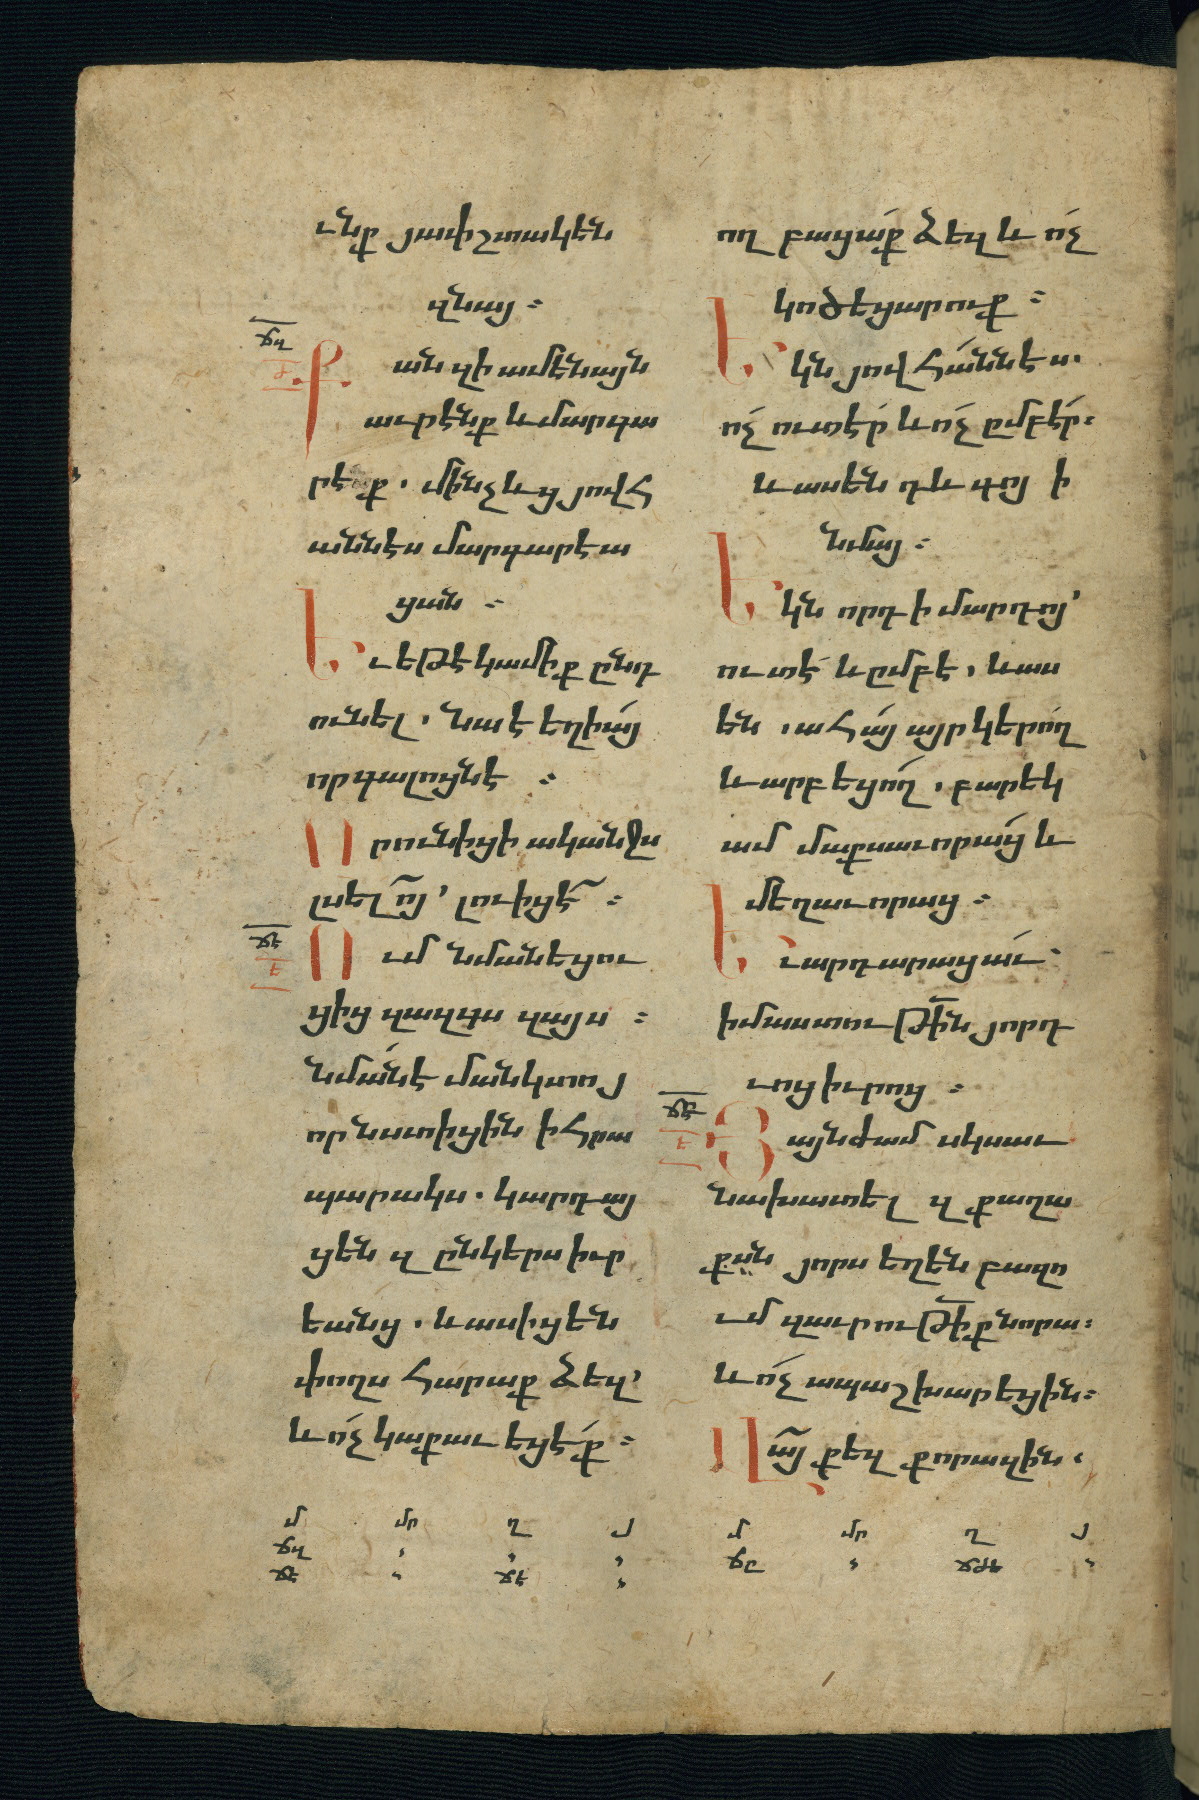 ւնք յափշտակեն
զնայ ։
ճդ
ժ
Քան զի ամենայն
աւրէնք և մարգա
րէ ք . մինչև ց յովհ
աննէս մարգարէա
ցան ։
Եւ եթէ կամիք ընդ
ունել . նա է եղիայ
որ գալոցն է ։
Որ ունիցի ականջս
լսելոյ՝ լուիցէ ։
ճե
ե
Ում նմանեցու
ցից զազգս զայս ։
նման է մանկտոջ
որ նստիցին ի հրա
պարակս . կարդայ
ցեն զ ընկերս իւր
եանց . և ասիցեն
փողս հարաք ձեզ՝
և ոչ կաքաւեցէք ։
ող բացաք ձեզ և ոչ
կոծեցարուք ։
Եկն յովհաննէս .
ոչ ուտէր և ոչ ըմբէր ։
և ասեն դև գոյ ի
նմայ ։
Եկն որդի մարդոյ՝
ուտէ և ըմբէ . և աս
են . ահայ այր կերող
և արբեցող . բարեկ
ամ մաքսաւորաց և
մեղաւորաց ։
Եւ արդարացաւ
իմաստութին յորդ
ւոց իւրոց ։
ճը
ե
Յայնժամ սկսաւ
նախատել զ քաղա
քսն յորս եղեն բազո
ւմ զաւրութիք նորա ։
և ոչ ապաշխարեցին ։
Վայ քեզ քորազին .
մ մր ղ յ
ճդ
ճե ճէ
մ մր ղ յ
ճը ճժե